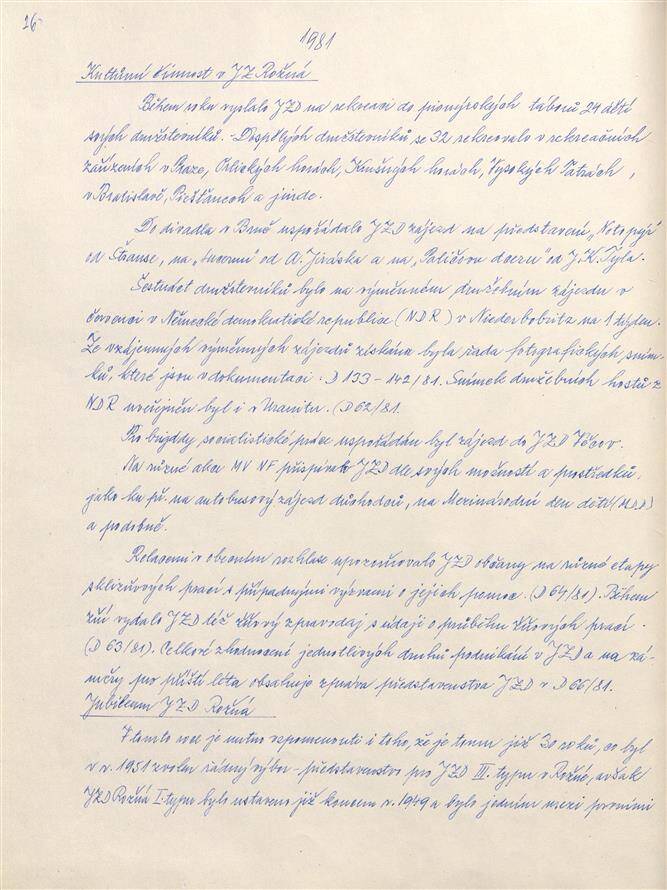 26
1981
Kulturní činnost v JZD Rožná
Během roku vyslalo JZD na rekreaci do pionýrských táborů 24 dětí
svých družstevníků. - Dospělých družstevníků se 32 rekreovalo v rekreačních
zařízeních v Praze, Orlických horách, Krušných horách, Vysokých Tatrách,
v Bratislavě, Piešťanech a jinde.
Do divadla v Brně uspořádalo JZD zájezd na představení „Netopýr"
od Štrause, na „Lucernu" od A. Jiráska a na „Paličovu dceru" od J. K. Tyla.
Šestnáct družstevníků bylo na výměnném družebním zájezdu v
červenci v Německé demokratické republice (NDR) v Niederbobritz na 1 týden.
Ze vzájemných výměnných zájezdů získána byla řada fotografických sním-
ků, které jsou v dokumentaci. D 133 - 142/81. Snímek družebních hostů z
NDR uveřejněn byl i v Uranitu. (D 62/81.
Pro brigády socialistické práce uspořádán byl zájezd do JZD
Na různé akce MV NF JZD dle svých možností a prostředků,
jako ku př. na autobusový zájezd důchodců, na Mezinárodní den dětí (MDD)
a podobně.
Relacemi v obecním rozhlase upozorňovalo JZD občany na různé etapy
sklizňových prací s případnými výzvami o jejich pomoc. (D 64/81). Během
žní vydalo JZD též žňový zpravodaj s údaji o průběhu žňových prací.
(D 63/81). Celkové zhodnocení jednotlivých druhů podnikání v JZD a na zá-
měry pro příští léta obsahuje zpráva představenstva JZD v D 66/81.
Jubileum JZD Rožná
V tomto roce je nutno vzpomenouti i toho, že je tomu již 30 roků, co byl
v r. 1951 zvolen řádný výbor - představenstvo pro JZD III. typu v Rožné, avšak
JZD Rožná I. typu bylo ustaveno již koncem r. 1949 a bylo jedním mezi prvními